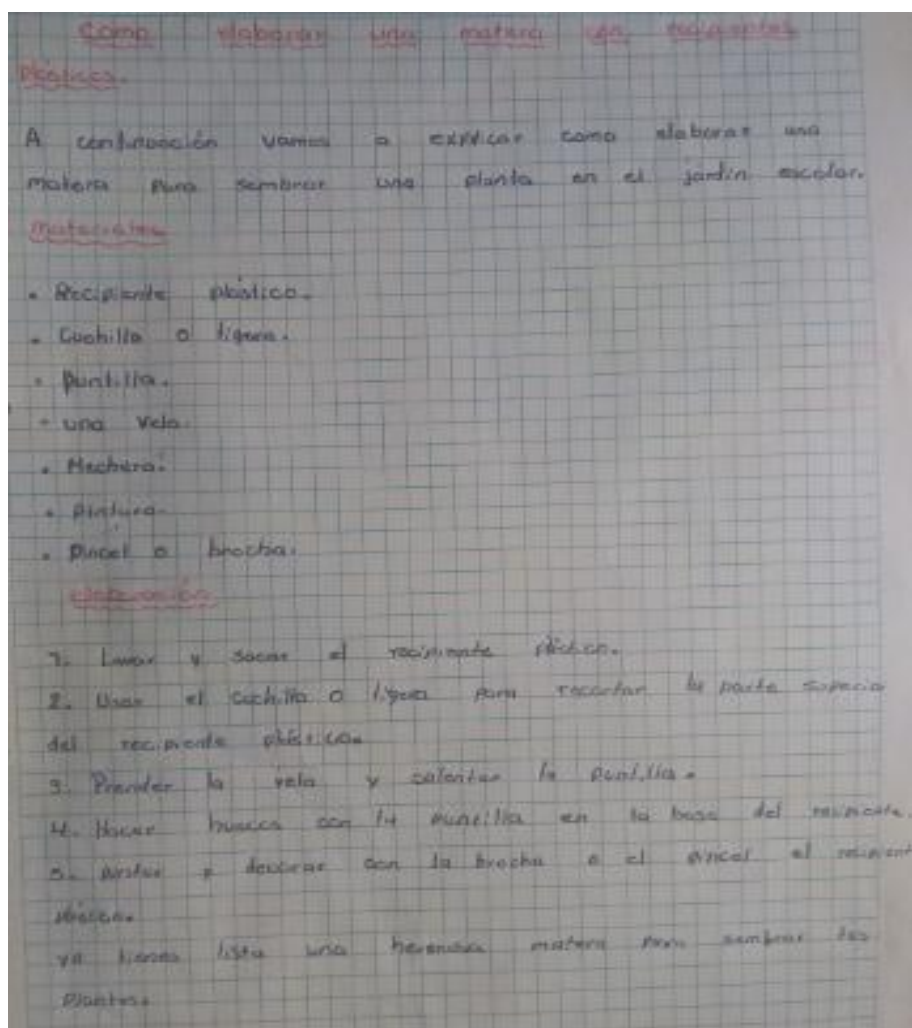 Como elaborar una matera con recipientes
Plásticos.
A continuación vamos a explicar como elaborar una
matera para sembrar una planta en el jardín escolar.
Materiales
- Recipiente plástico.
- Cuchilla o tigera.
- Puntilla.
- una vela.
- Mechera.
- Pintura.
- Pincel o brocha.
elaboración
1. Lavar y secar el recipiente plástico.
2. Usar el cuchilla o tigera para recortar la parte superio
del recipiente plástico.
3. Prender la vela y calentar la puntilla.
4. Hacer huecos con la puntilla en la base del recipiente.
5. pintar y decorar con la brocha o el pincel el recipient
plástico.
ya tienes lista una hermosa matera para sembrar las
Plantas.